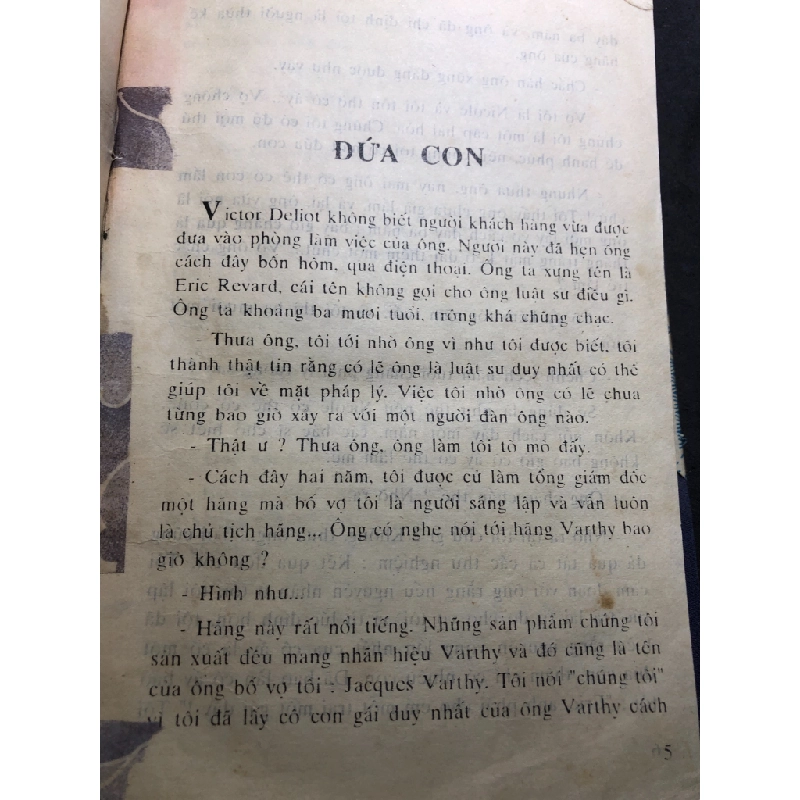 ĐỨA CON
Victor Deliot không biết người khách hàng vừa được
đưa vào phòng làm việc của ông. Người này đã hẹn ông
cách đây bốn hôm, qua điện thoại. Ông ta xưng tên là
Eric Revard, cái tên không gợi cho ông luật sư điều gì.
Ông ta khoảng ba mươi tuổi, trông khá chững chạc.
- Thưa ông, tôi tới nhờ ông vì như tôi được biết, tôi
thành thật tin rằng có lẽ ông là luật sư duy nhất có thể
giúp tôi về mặt pháp lý. Việc tôi nhờ ông có lẽ chưa
từng bao giờ xảy ra với một người đàn ông nào.
- Thật ư ? Thưa ông, ông làm tôi tò mò đấy.
- Cách đây hai năm, tôi được cử làm tổng giám đốc
một hãng mà bố vợ tôi là người sáng lập và vẫn luôn
là chủ tịch hãng... Ông có nghe nói tới hãng Varthy bao
giờ không ?
- Hình như...
- Hãng này rất nổi tiếng. Những sản phẩm chúng tôi
sản xuất đều mang nhãn hiệu Varthy và đó cũng là tên
của ông bố vợ tôi : Jacques Varthy. Tôi nói "chúng tôi"
vì tôi đã lấy cô con gái duy nhất của ông Varthy cách
5